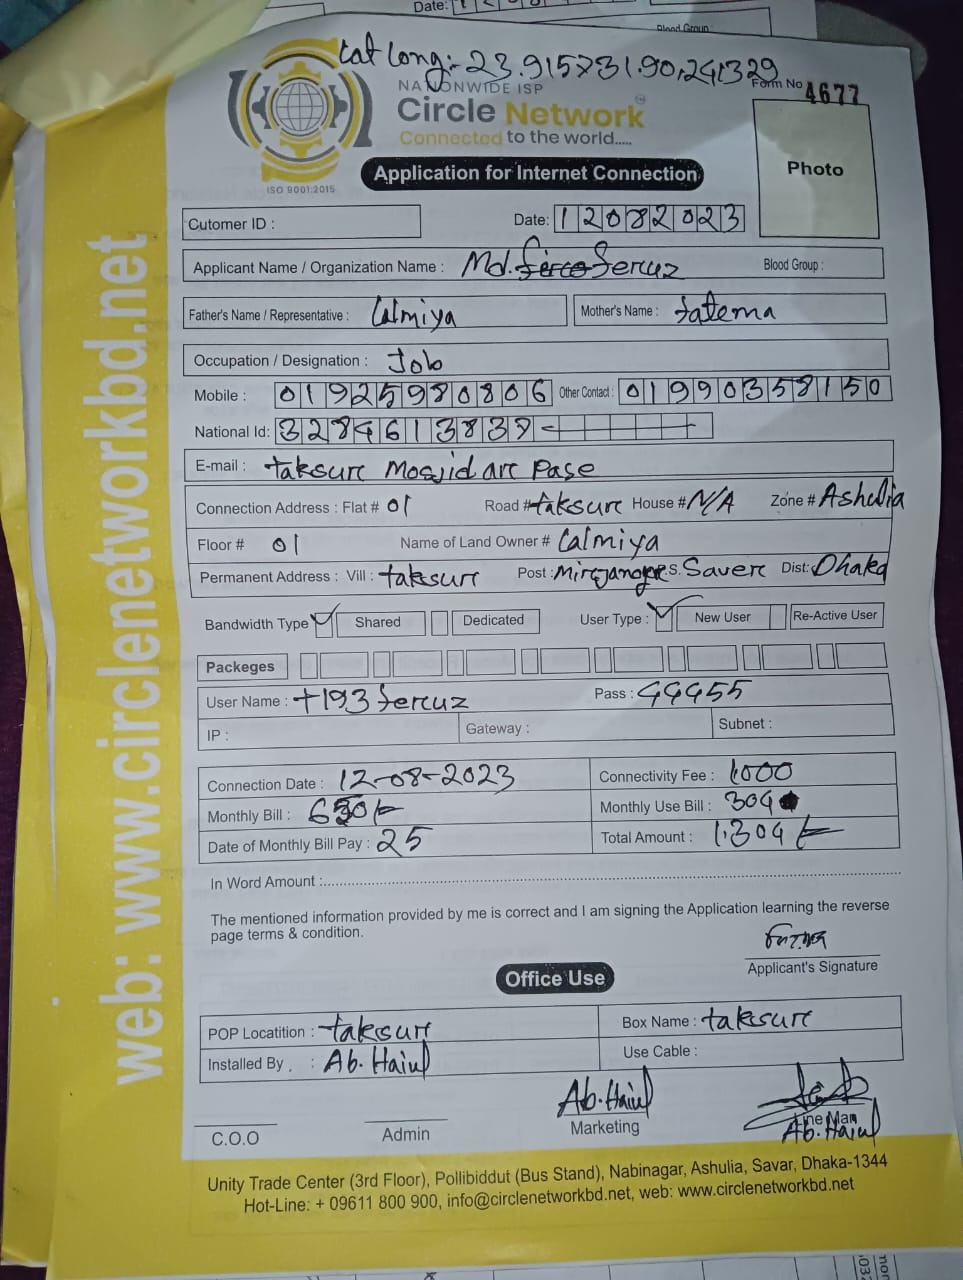 Date:
Blood Group
Lat Long:- 23.915731.90,241329
NATIONWIDE ISP
Form No 4677
Circle Network
Connected to the world.....
ISO 9001:2015
Application for Internet Connection
Photo
Cutomer ID :
Date: 12082023
Applicant Name / Organization Name : Md. Feruz Blood Group :
Father's Name / Representative : Lalmiya Mother's Name : fatema
Occupation / Designation : Job
Mobile : 01925980806 Other Contact : 01990358150
National Id: 3284613839
E-mail : taksure Mosjid arc Pase
Connection Address : Flat # 01 Road # taksure House # N/A Zone # Ashulia
Floor # 01 Name of Land Owner # Lalmiya
Permanent Address : Vill : taksure Post : P.S. Savere Dist: Dhaka
Bandwidth Type Shared Dedicated User Type : New User Re-Active User
Packeges
User Name : t193feruz Pass : 99955
IP : Gateway : Subnet :
Connection Date : 12-08-2023 Connectivity Fee : 1000
Monthly Bill : 630/- Monthly Use Bill : 304
Date of Monthly Bill Pay : 25 Total Amount : 1304/-
In Word Amount :
The mentioned information provided by me is correct and I am signing the Application learning the reverse
page terms & condition.
Applicant's Signature
Office Use
POP Locatition : taksure Box Name : taksure
Installed By . : Ab. Haiul Use Cable :
Ab. Haiul
C.O.O Admin Marketing Line Man
Ab. Haiul
Unity Trade Center (3rd Floor), Pollibiddut (Bus Stand), Nabinagar, Ashulia, Savar, Dhaka-1344
Hot-Line: + 09611 800 900, info@circlenetworkbd.net, web: www.circlenetworkbd.net
web: www.circlenetworkbd.net